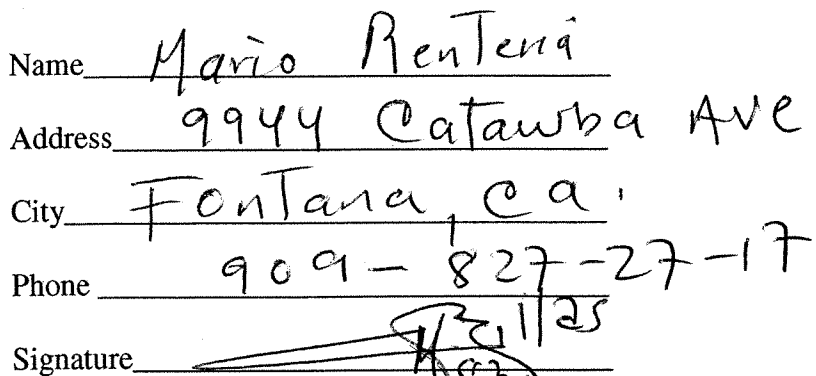 Name Mario Renteria
Address 9944 Catawba Ave
City Fontana, Ca.
Phone 909-827-27-17
Signature